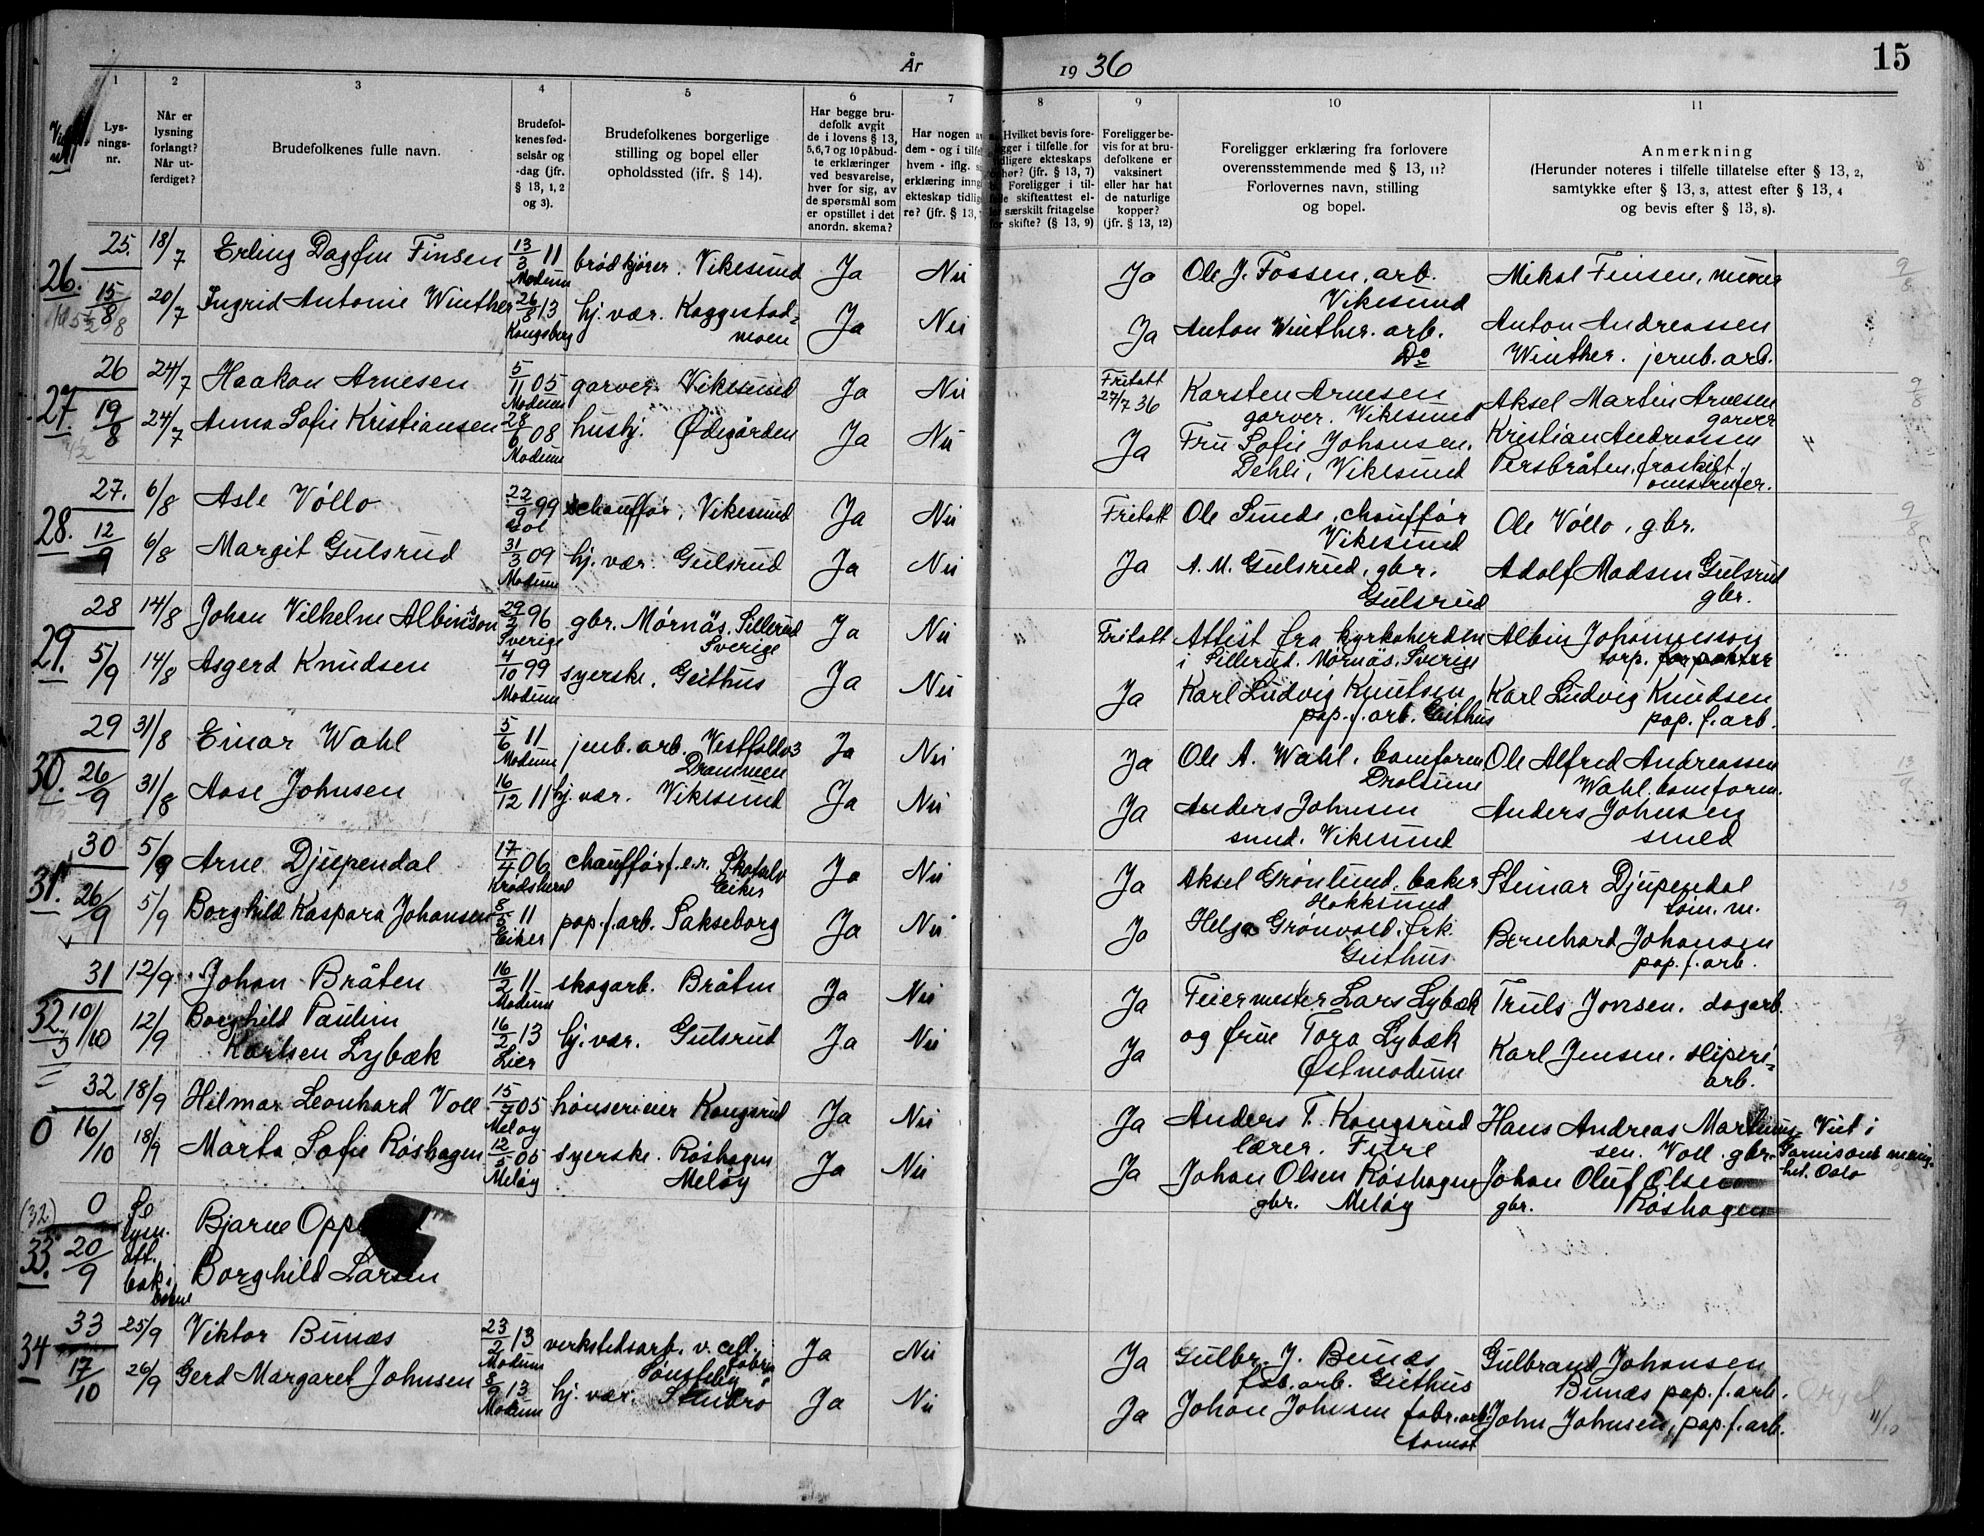 År 1936
15
1 2 3 4 5 6 7 8 9 10 11
Lys-
nings-
nr.
Når er
lysning
forlangt?
Når ut-
ferdiget?
Brudefolkenes fulle navn.
Brudefol-
kenes fød-
selsår og
-dag (jfr.
§ 13, 1, 2
og 3).
Brudefolkenes borgerlige
stilling og bopel eller
opholdssted (jfr. § 14).
Har begge bru-
defolk avgit
de i lovens § 13,
5,6,7 og 10 påbud-
te erklæringer
ved besvarelse,
hver for sig, av
de spørsmål som
er opstillet i det
anordn. skema?
Har nogen av
dem - og i tilfe
hvem - iflg. s
erklæring inng
ekteskap tidlig
re? (jfr. § 13,
Hvilket bevis fore-
gger i tilfelle for
dligere ekteskaps
phør? (jfr. § 13, 7)
Foreligger i til-
skifteattest el-
særskilt fritagelse
for skifte? (§ 13, 9)
Foreligger be-
vis for at bru-
defolkene er
vaksinert
eller har hat
de naturlige
kopper?
(jfr. § 13, 12)
Foreligger erklæring fra forlovere
overensstemmende med § 13, 11?
Forlovernes navn, stilling
og bopel.
Anmerkning
(Herunder noteres i tilfelle tillatelse efter § 13, 2,
samtykke efter § 13, 3, attest efter § 13, 4
og bevis efter § 13, 8).
26. 25. 18/7 Erling Dagfin Finsen 13/3 11 Modum brødkjører. Vikesund Ja Nei Ja Ole J. Fossen, arb. Vikesund Mikal Finsen, murer 9/8
15/8 20/7 Ingrid Antonie Winther 26/8 13 Kongsberg hj. vær. Kaggestad-moen Ja Nei Ja Anton Winther. arb. Do Anton Andreassen Winther. jernb. arb.
27. 26 24/7 Haakon Arnesen 5/11 05 Modum garver. Vikesund Ja Nei Fritatt 27/7 36 Karsten Arnesen garver. Vikesund Aksel Martin Arnesen garver 9/8
19/8 24/7 Anna Sofie Kristiansen 28/6 08 Modum hushj. Ødegården Ja Nei Ja Fru Sofie Johansen, Dehli, Vikesund Kristian Andreassen Persbråten, fraskilt
28. 27. 6/8 Asle Vøllo 22/9 99 chauffør, Vikesund Ja Nei Fritatt Ole Sunde, chauffør Vikesund Ole Vøllo, gbr. 9/8
12/9 6/8 Margit Gulsrud 31/3 09 Modum hj. vær. Gulsrud Ja Nei Ja A. M. Gulsrud, gbr. Gulsrud Adolf Madsen Gulsrud gbr.
29. 28 14/8 Johan Vilhelm Albinsson 29/2 96 Sverige gbr. Mörnäs, Sillerud Sverige Ja Nei Fritatt Attest fra kyrkoherden i Sillerud. Mörnäs. Sverige Albin Johannesson torp.
5/9 14/8 Asgerd Knudsen 4/10 99 Modum syerske, Geithus Ja Nei Ja Karl Ludvig Knutsen pap. f. arb. Geithus Karl Ludvig Knudsen pap. f. arb.
30. 29 31/8 Einar Wahl 5/6 11 Modum jernb. arb. Vestfoldv 3 Drammen Ja Nei Ja Ole A. Wahl, bomform Drolsum Ole Alfred Andreassen Wahl. bomform. 13/9
26/9 31/8 Aase Johnsen 16/12 11 hj. vær. Vikesund Ja Nei Ja Anders Johnsen smed. Vikesund Anders Johnsen smed
31. 30 5/9 Arne Djupendal 17/4 06 Krødsherad chauffør f. e. r. Skotselv Eiker Ja Nei Ja Aksel Grønlund. baker Hokksund Steinar Djupendal tøm. m. 13/9
26/9 5/9 Borghild Kaspara Johansen 8/5 11 Eiker pap. f. arb. Sakseborg Ja Nei Ja Helga Grønvold. frk. Geithus Bernhard Johansen pap. f. arb.
32. 31 12/9 Johan Bråten 16/2 11 Modum skogarb. Bråten Ja Nei Ja Feiermester Lars Lybæk Truls Jonsen, dagarb.
10/10 12/9 Borghild Paulin Karlsen Lybæk 16/2 13 Lier hj. vær. Gulsrud Ja Nei Ja og frue Tora Lybæk Østmodum Karl Jensen. sliperi-arb. 13/9
0 32 18/9 Hilmar Leonhard Voll 15/7 05 Meløy hønserieier Kongsrud Ja Nei Ja Anders T. Kongsrud lærer. Fure Hans Andreas Martinus-sen. Voll. gbr. Viet i Garnisons menig-het. Oslo
16/10 18/9 Marta Sofie Røshagen 12/5 05 Meløy syerske. Røshagen Meløy Ja Nei Ja Johan Olsen Røshagen gbr. Meløy Johan Oluf Olsen gbr. Røshagen
(32) 33. 0 Se lysn. att. bak i boken Bjarne Opp
20/9 Borghild Larsen
34 33 25/9 Viktor Bunæs 23/2 13 Modum verkstedsarb. v. cell. fabr. Ja Nei Ja Gulbr. J. Bunæs fab. arb. Geithus Gulbrand Johansen Bunæs pap. f. arb.
17/10 26/9 Gerd Margaret Johnsen 8/9 13 Modum hj. vær. Stenbro Ja Nei Ja Johan Johnsen fabr. arb. Åmot John Johnsen, pap. f. arb. Orgel 11/10